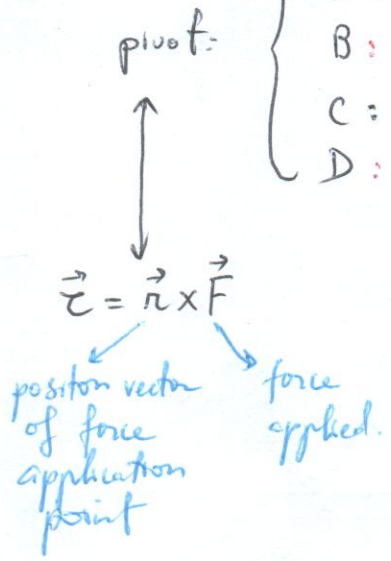 pivot:
B :
C :
D :
τ⃗ = r⃗ × F⃗
positon vector
of force
application
point
force
applied.